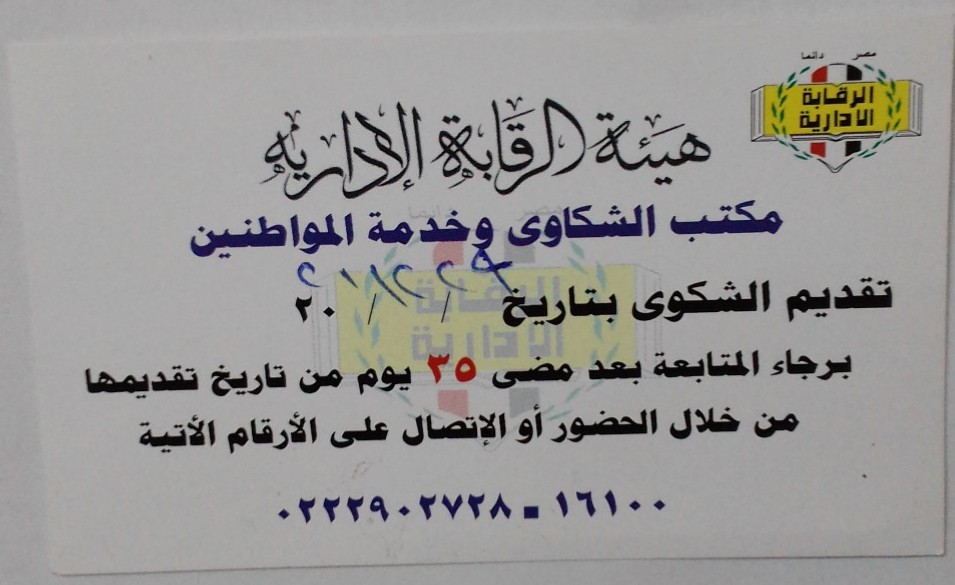 مصر دائما
الرقابة
الادارية
هيئة الرقابة الإدارية
مكتب الشكاوى وخدمة المواطنين
تقديم الشكوى بتاريخ / / ٢٠
برجاء المتابعة بعد مضى ٣٥ يوم من تاريخ تقديمها
من خلال الحضور أو الإتصال على الأرقام الأتية
١٦١٠٠ - ٠٢٢٢٩٠٢٧٢٨